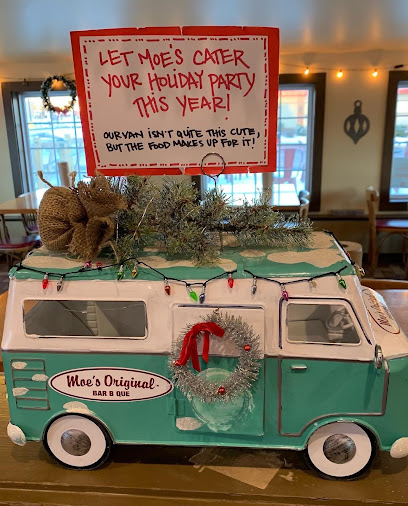 LET MOE'S CATER
YOUR HOLIDAY PARTY
THIS YEAR!
OUR VAN ISN'T QUITE THIS CUTE,
BUT THE FOOD MAKES UP FOR IT!
Moe's Original
BAR B QUE